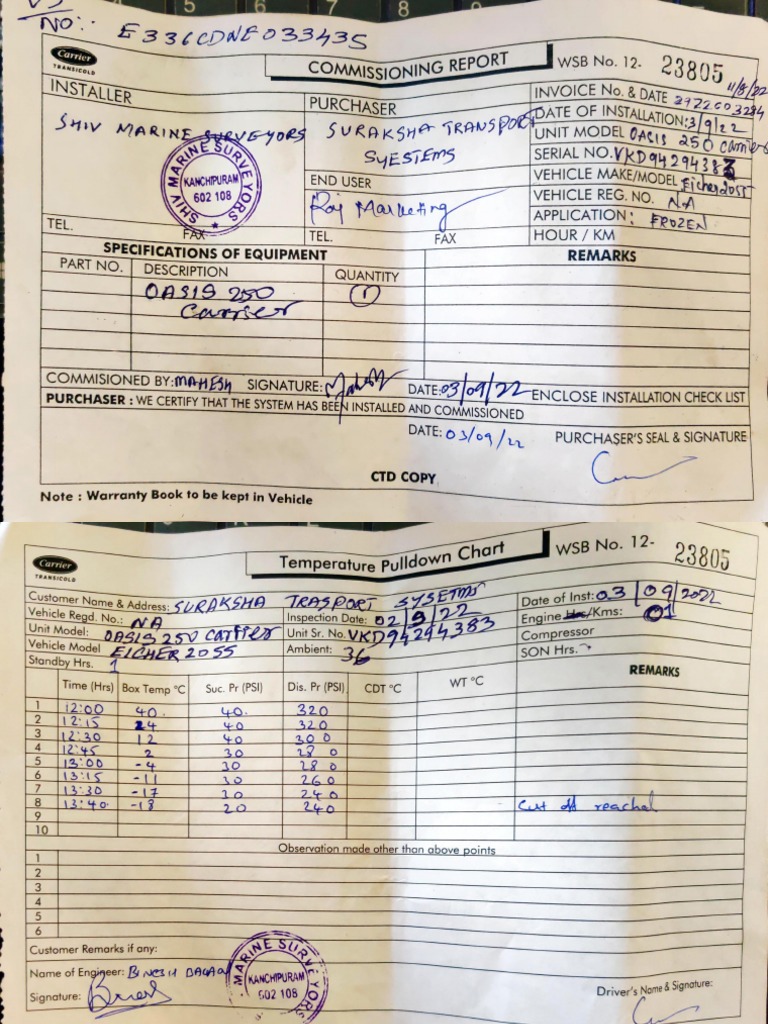 NO:- E336CDNE033435
Carrier
TRANSICOLD
COMMISSIONING REPORT
WSB No. 12- 23805
INSTALLER
SHIV MARINE SURVEYORS
SHIV MARINE SURVEYORS
KANCHIPURAM
602 108
TEL. FAX
PURCHASER
SURAKSHA TRANSPORT
SYESTEMS
END USER
Raj Marketing
TEL. FAX
11/8/22
INVOICE No. & DATE
DATE OF INSTALLATION: 3/9/22
UNIT MODEL OASIS 250 Carrier
SERIAL NO. VKD94294383
VEHICLE MAKE/MODEL Eicher 2055
VEHICLE REG. NO. NA
APPLICATION: FROZEN
HOUR / KM
SPECIFICATIONS OF EQUIPMENT
REMARKS
PART NO. DESCRIPTION QUANTITY
OASIS 250 1
Carrier
COMMISIONED BY: MAHESH SIGNATURE: Mahesh DATE: 03/09/22 ENCLOSE INSTALLATION CHECK LIST
PURCHASER : WE CERTIFY THAT THE SYSTEM HAS BEEN INSTALLED AND COMMISSIONED
DATE: 03/09/22 PURCHASER'S SEAL & SIGNATURE
CTD COPY
Note : Warranty Book to be kept in Vehicle
Carrier
TRANSICOLD
Temperature Pulldown Chart
WSB No. 12- 23805
Customer Name & Address: SURAKSHA TRASPORT SYSETMS
Vehicle Regd. No.: NA
Inspection Date: 02/9/22
Unit Model: OASIS 250 Carrier
Unit Sr. No. VKD94294383
Vehicle Model EICHER 2055
Ambient: 36
Standby Hrs. 1
Date of Inst: 03/09/2022
Engine Hrs/Kms: 01
Compressor
SON Hrs.
Time (Hrs) Box Temp °C Suc. Pr (PSI) Dis. Pr (PSI) CDT °C WT °C REMARKS
1 12:00 40 40 320
2 12:15 24 40 320
3 12:30 12 40 300
4 12:45 2 30 280
5 13:00 -4 30 280
6 13:15 -11 30 260
7 13:30 -17 30 240
8 13:40 -18 20 240 Cut off reached
9
10
Observation made other than above points
1
2
3
4
5
6
Customer Remarks if any:
Name of Engineer: BINESH
Signature:
MARINE SURVEYORS
KANCHIPURAM
602 108
Driver's Name & Signature: